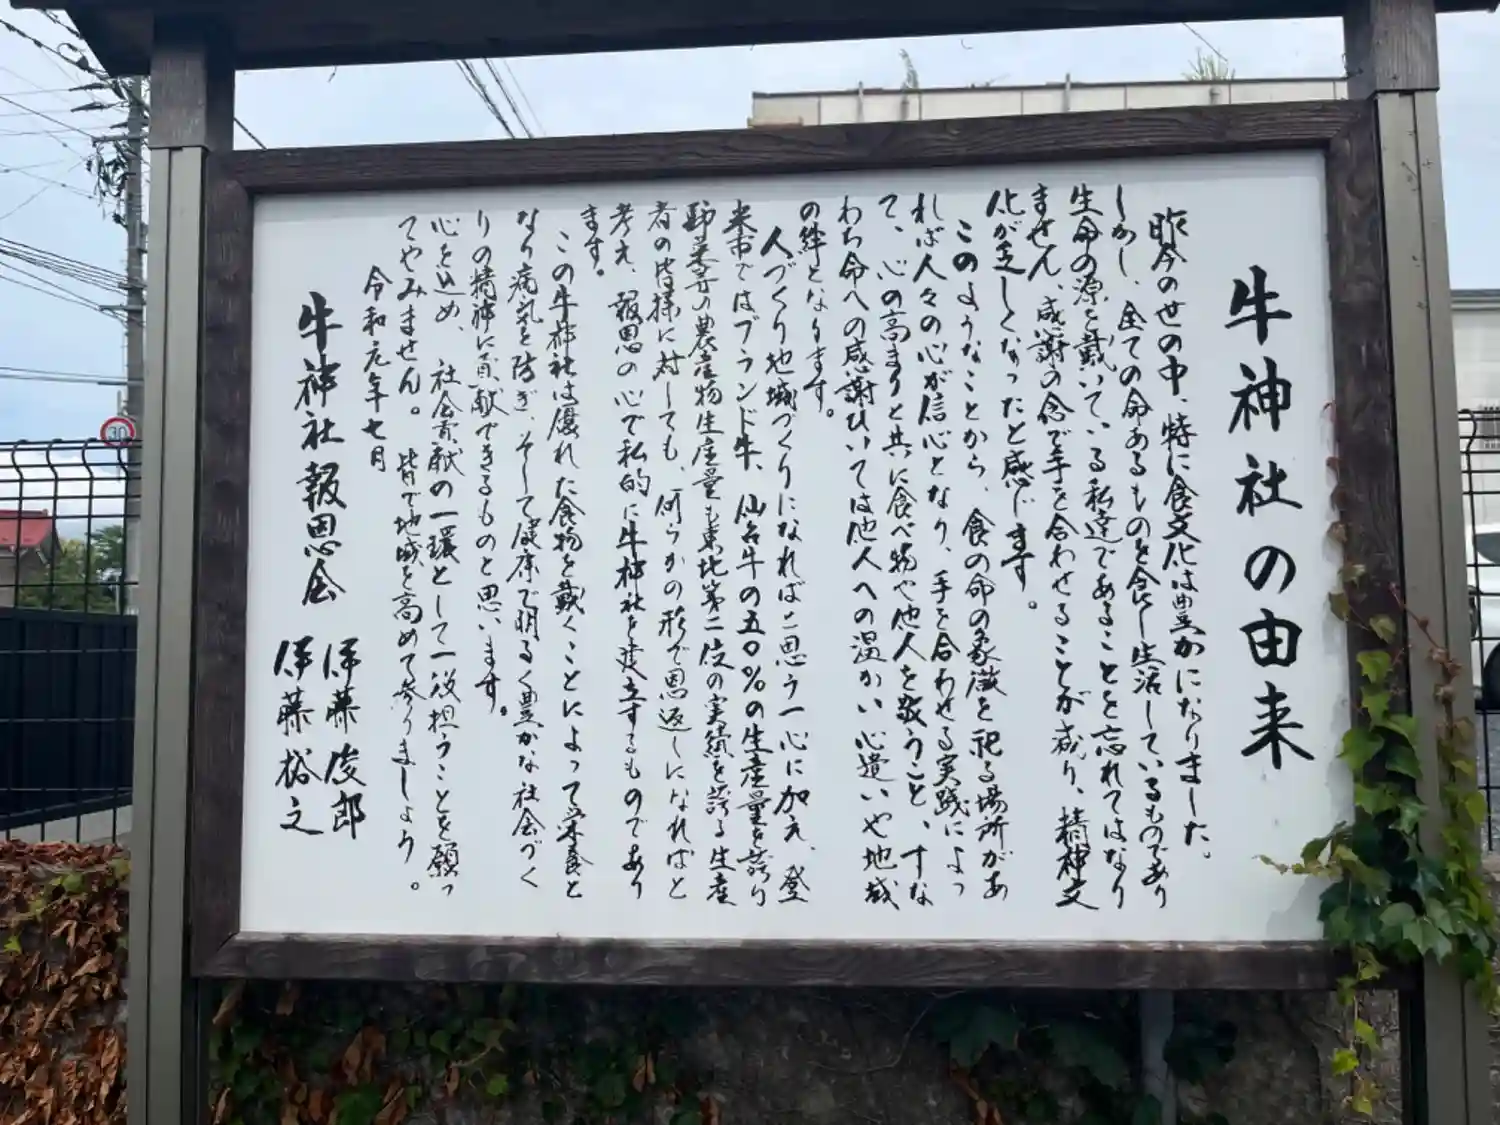 牛神社の由来
昨今の世の中、特に食文化は豊かになりました。
しかし、全ての命あるものを食し生活しているものであり
生命の源を戴いている私達であることを忘れてはなり
ません、感謝の念で手を合わせることが減り、精神文
化が乏しくなったと感じます。
このようなことから、食の命の象徴を祀る場所があ
れば人々の心が信心となり、手を合わせる実践によっ
て、心の高まりと共に食べ物や他人を敬うこと、すな
わち命への感謝ひいては他人への温かい心遣いや地域
の絆となります。
人づくり地域づくりになればと思う一心に加え、登
米市ではブランド牛、仙台牛の五〇%の生産量を誇り
野菜等の農産物生産量も東北第二位の実績を誇る生産
者の皆様に対しても、何らかの形で恩返しになればと
考え、報恩の心で私的に牛神社を建立するものであり
ます。
この牛神社は優れた食物を戴くことによって栄養と
なり病気を防ぎ、そして健康で明るく豊かな社会づく
りの精神に貢献できるものと思います。
心を込め、社会貢献の一環として一役担うことを願っ
てやみません。皆で地域を高めて参りましょう。
令和元年七月
牛神社報恩会 伊藤俊郎
伊藤裕之
30